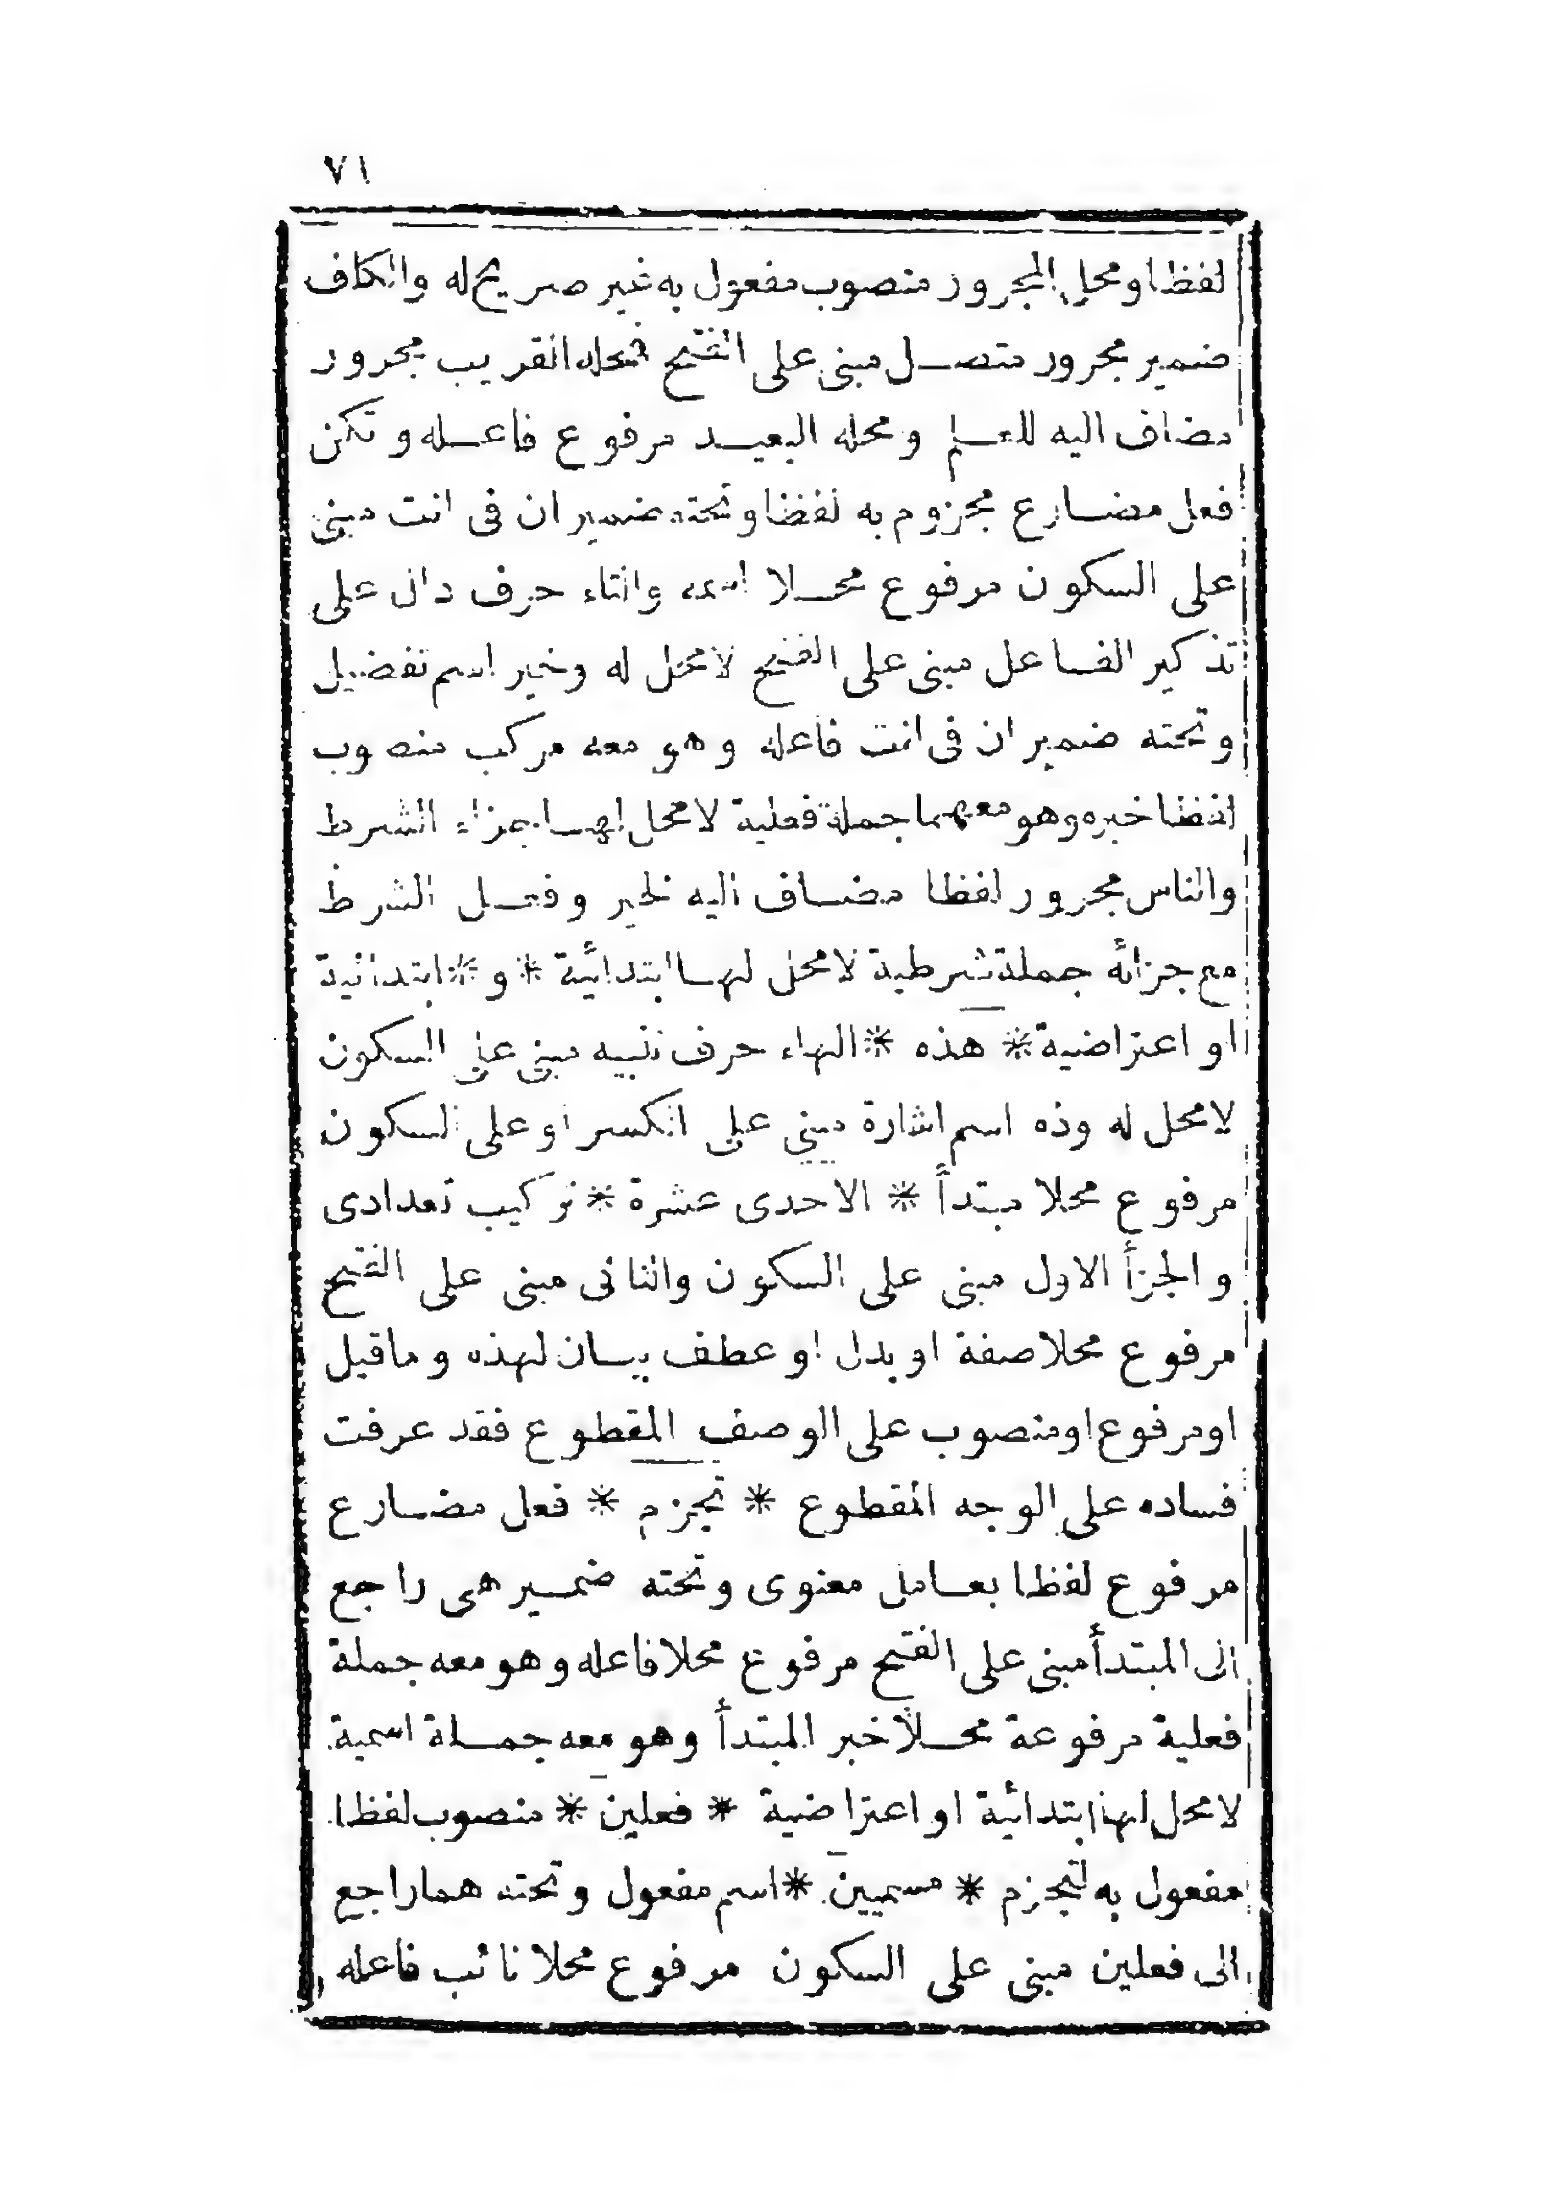 ٧١
لفظا ومحل المجرور منصوب مفعول به غير صريح له والكاف
ضمير مجرور متصل مبنى على الفتح فمحله القريب مجرور
مضاف اليه للعلم ومحله البعيد مرفوع فاعله و تكن
فعل مضارع مجزوم به لفظا وتحته ضمير ان فى انت مبنى
على السكون مرفوع محلا اسمه والتاء حرف دال على
تذكير الفاعل مبنى على الفتح لا محل له وخير اسم تفضيل
وتحته ضمير ان فى انت فاعله وهو معه مركب منصوب
لفظا خبره وهو معهما جملة فعلية لا محل لها جزاء الشرط
والناس مجرور لفظا مضاف اليه لخير وفعل الشرط
مع جزائه جملة شرطية لا محل لها ابتدائية * و * ابتدائية
او اعتراضية * هذه * الهاء حرف تنبيه مبنى على السكون
لا محل له وذه اسم اشارة مبنى على الكسر او على السكون
مرفوع محلا مبتدأ * الاحدى عشرة * تركيب تعدادى
والجزأ الاول مبنى على السكون والثانى مبنى على الفتح
مرفوع محلا صفة او بدل او عطف بيان لهذه وما قيل
او مرفوع او منصوب على الوصف المقطوع فقد عرفت
فساده على الوجه المقطوع * تجزم * فعل مضارع
مرفوع لفظا بعامل معنوى وتحته ضمير هى راجع
الى المبتدأ مبنى على الفتح مرفوع محلا فاعله وهو معه جملة
فعلية مرفوعة محلا خبر المبتدأ وهو معه جملة اسمية
لا محل لها ابتدائية او اعتراضية * فعلين * منصوب لفظا
مفعول به لتجزم * مسميين * اسم مفعول وتحته هما راجع
الى فعلين مبنى على السكون مرفوع محلا نائب فاعله